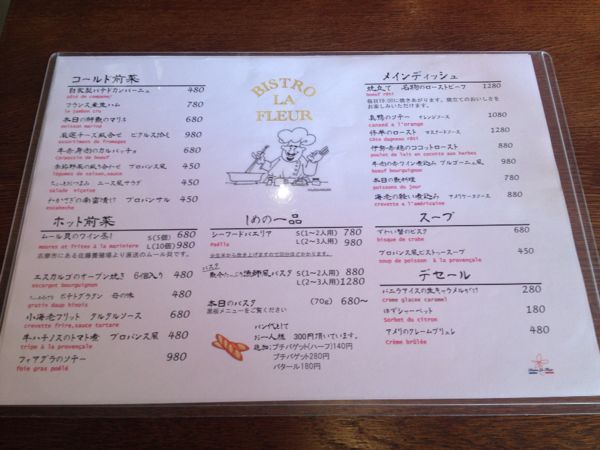 BISTRO
LA
FLEUR
コールド前菜
自家製パテドカンパーニュ 480
pâté de campane
フランス産生ハム 780
le jambon cru
本日の鮮魚のマリネ 680
poisson mariné
厳選チーズ盛合せ ピクルス添え 980
assortiments de fromages
牛赤身肉のカルパッチョ 980
Carpaccio de boeuf
450
légumes de saison
ニース風サラダ 450
salade niçoise
プロバンサル 450
escabeche
ホット前菜
ムール貝のワイン蒸し S(5個) 680
moures et frites à la mariniere L(10個) 980
志摩市にある佐藤養殖場より直送のムール貝です。
エスカルゴのオーブン焼き 6個入り 480
escargot bourguignon
380
gratin daup hinois
小海老フリット タルタルソース 680
crevette frire,sauce tartare
牛ハチノスのトマト煮 プロバンス風 480
tripe à la provençale
フォアグラのソテー 980
foie gras poêlé
〆の一品
シーフードパエリア S(1〜2人用) 780
Paëlla L(2〜3人用) 980
パスタ
漁師風パスタ S(1〜2人用) 880
L(2〜3人用) 1280
本日のパスタ (70g) 680〜
黒板メニューをご覧ください
パン代として
お一人様 300円頂いています。
追加:プチバゲット(ハーフ)140円
プチバゲット280円
バタール180円
メインディッシュ
焼立て 名物のローストビーフ 1280
boeuf rôti
毎日18:00に焼きあがります。焼立てのおいしさを
お楽しみいただけます。
真鴨のソテー オレンジソース 1080
canard a l'orange
仔羊のロースト マスタードソース 1080
Côte d'agneau rôti
伊勢赤鶏のココットロースト 880
poulet de lait en cocotte aux herbes
牛の赤ワイン煮込み ブルゴーニュ風 980
boeuf bourguignon
本日の魚料理 880
poissons du jour
海老の軽い煮込み アメリケーヌソース 880
crevette a l'américaine
スープ
ずわい蟹のビスク 580
bisque de crabe
プロバンス風ピストゥースープ 450
soup de poisson à la provençale
デセール
バニラアイスの生キャラメルがけ 280
crème glacée caramel
ゆずシャーベット 180
Sorbet du citron
アメリのクレームブリュレ 480
Crème brûlée